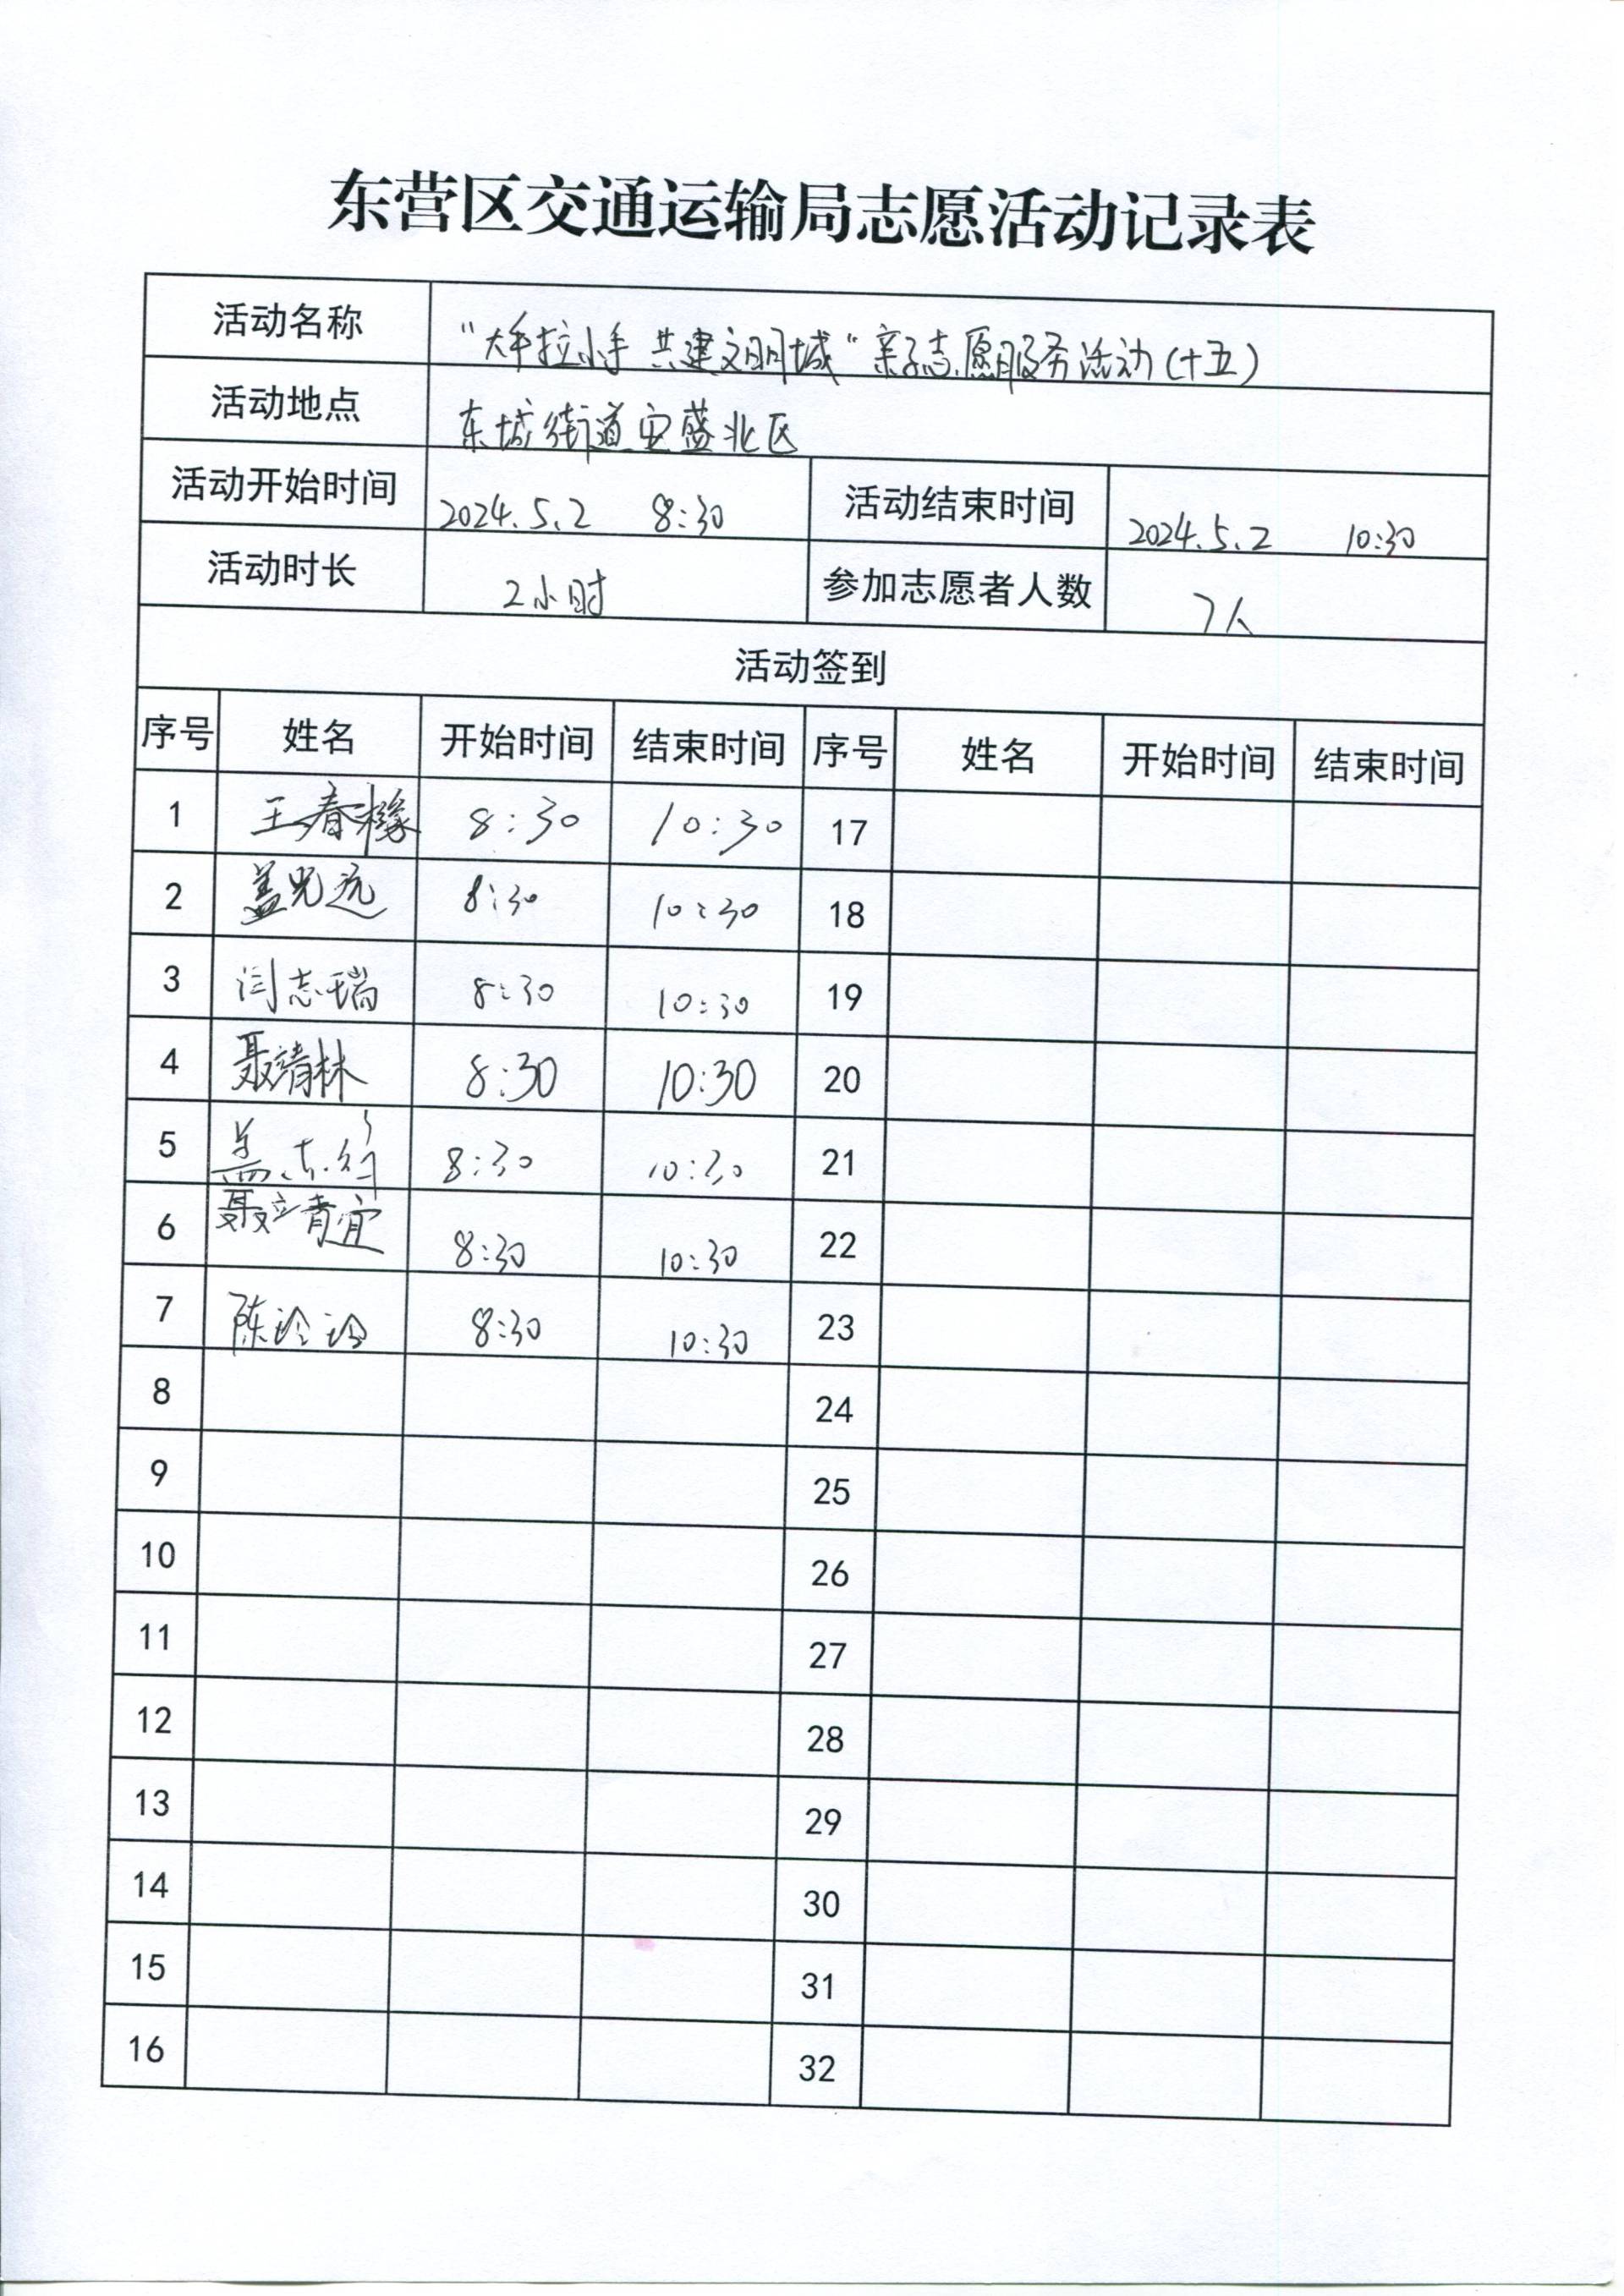 东营区交通运输局志愿活动记录表
活动名称 “大手拉小手 共建文明城”亲子志愿服务活动(十五)
活动地点 东城街道安盛北区
活动开始时间 2024.5.2 8:30 活动结束时间 2024.5.2 10:30
活动时长 2小时 参加志愿者人数 7人
活动签到
序号 姓名 开始时间 结束时间 序号 姓名 开始时间 结束时间
1 王春橼 8:30 10:30 17
2 盖 8:30 10:30 18
3 闫志瑞 8:30 10:30 19
4 聂靖林 8:30 10:30 20
5 盖志 8:30 10:30 21
6 聂靖宜 8:30 10:30 22
7 陈玲玲 8:30 10:30 23
8 24
9 25
10 26
11 27
12 28
13 29
14 30
15 31
16 32